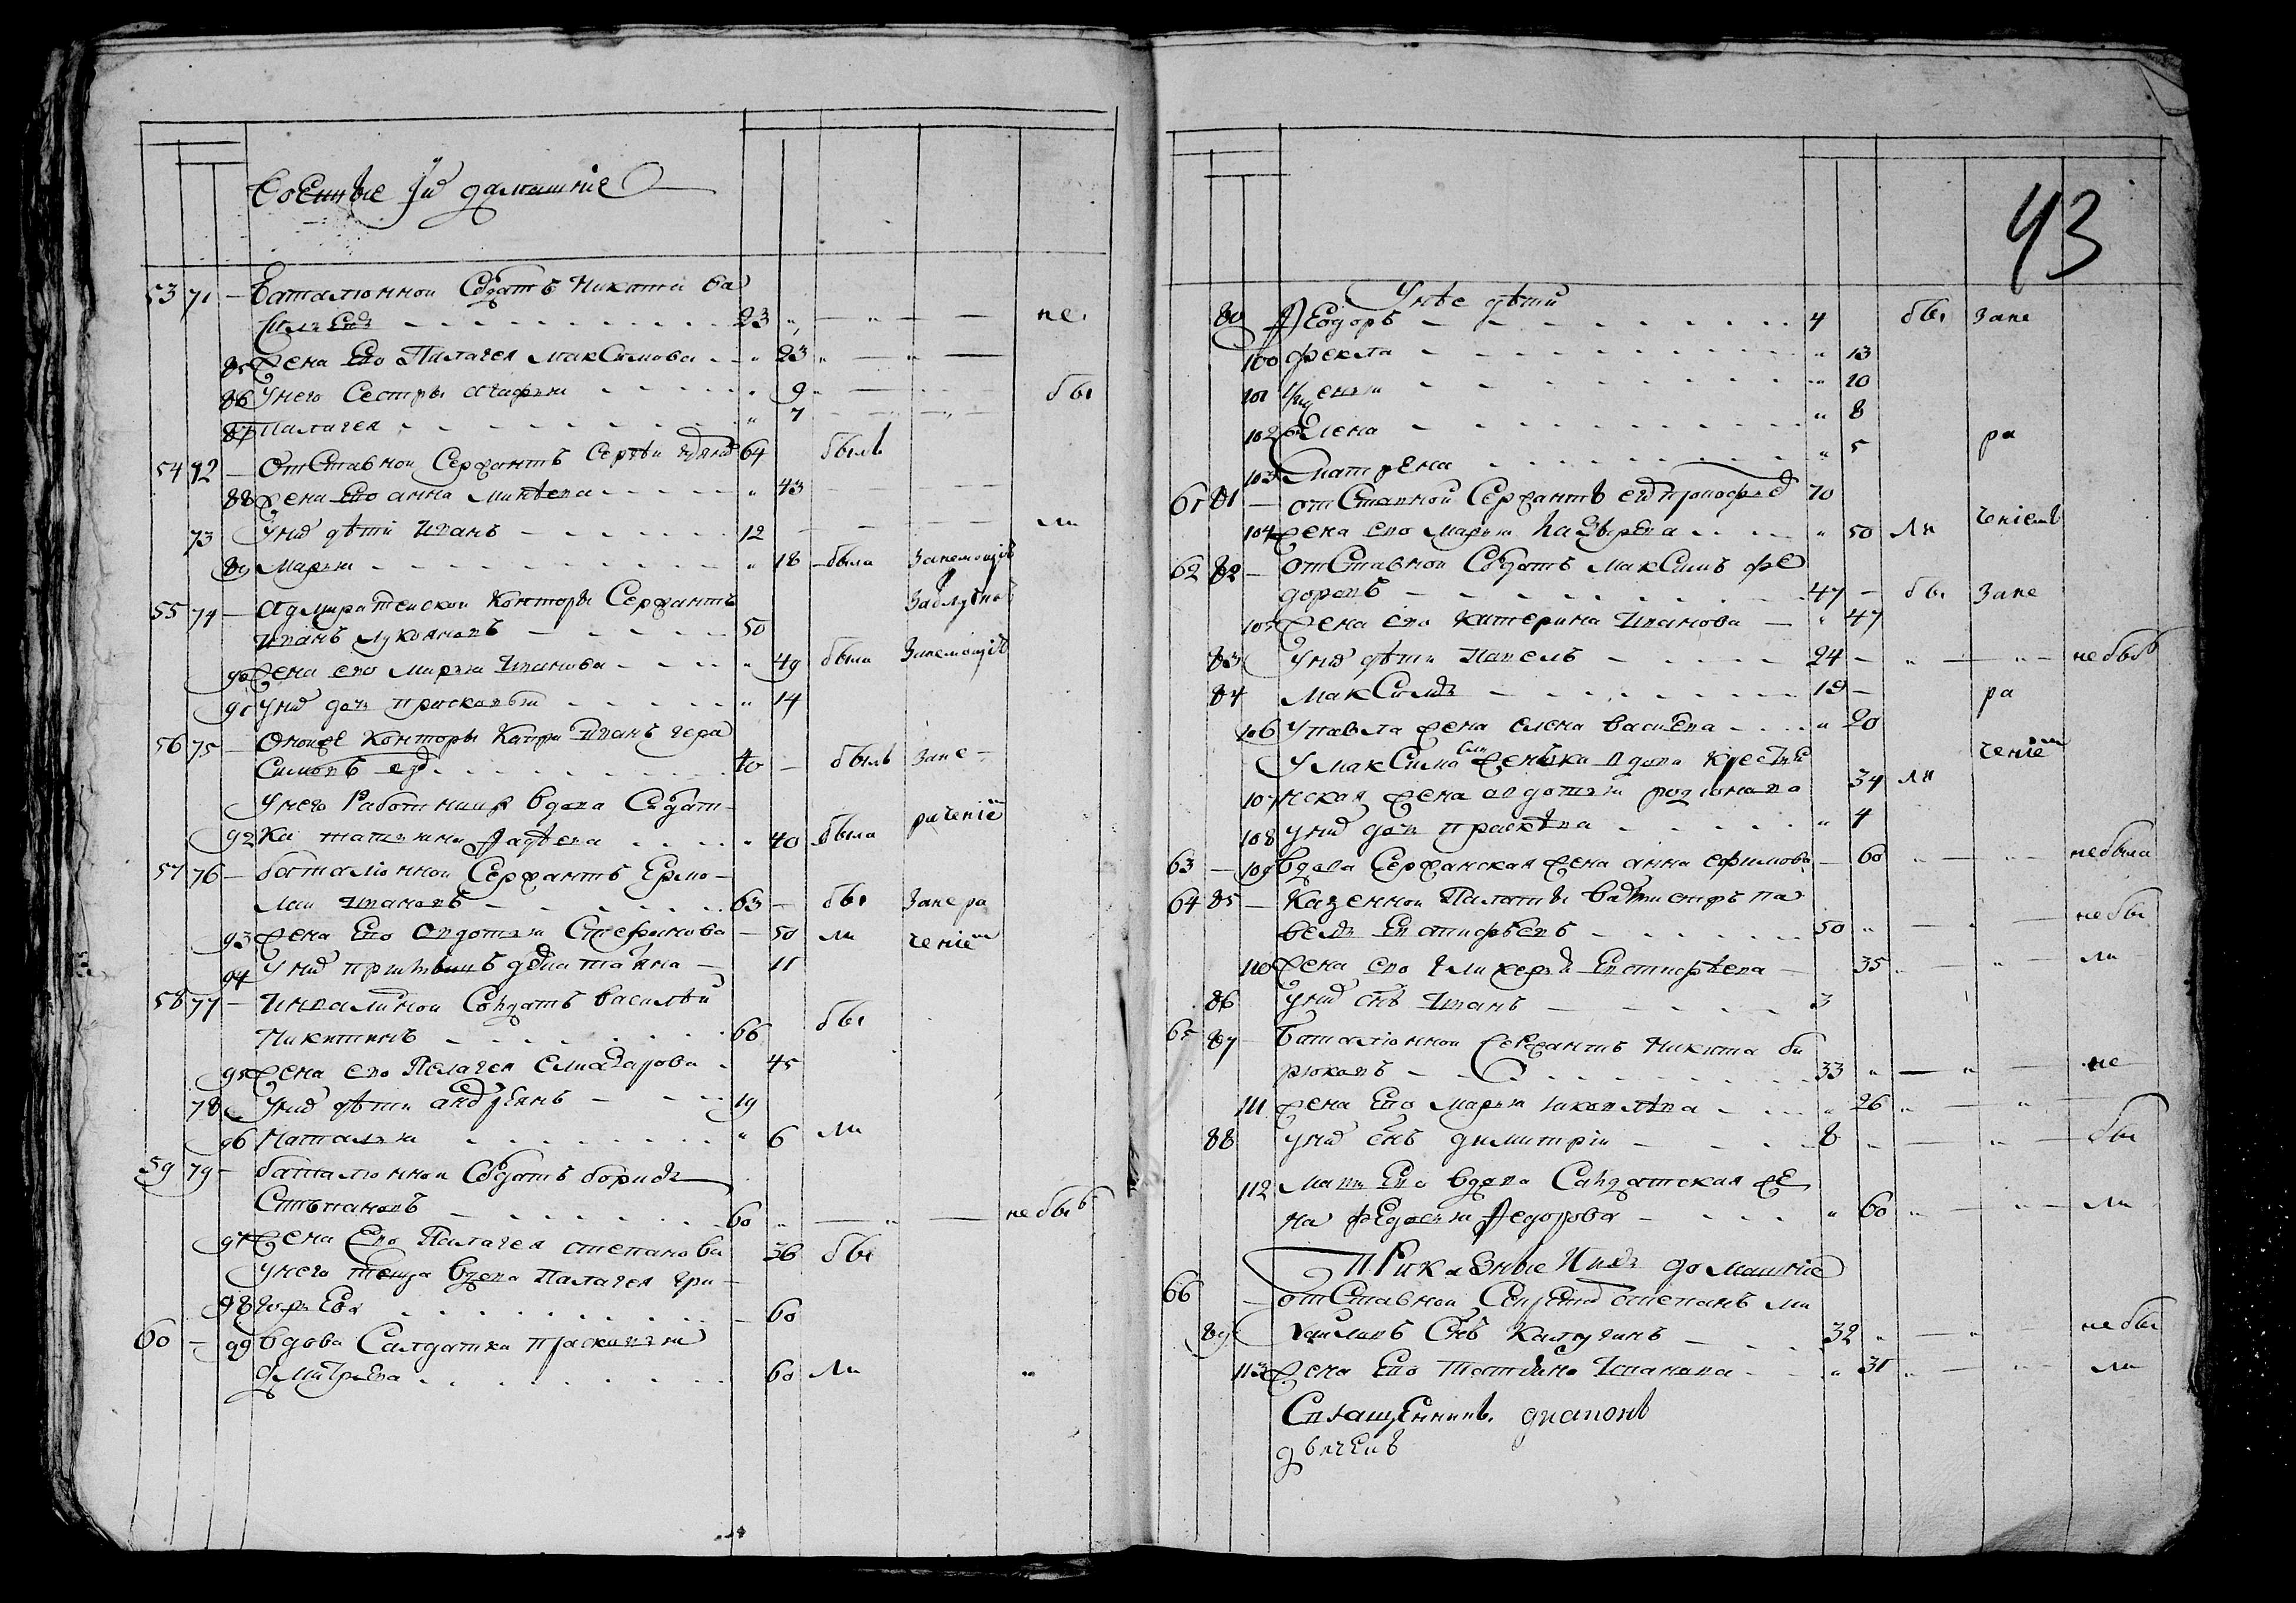 Военные и их домашние
53 71 — баталионной Солдатъ Никитй Ва
сильевъ 23 не
85 Жена Его Пилагея Максимова 23
86 У него Сестры агафья 9 бы
87 Палагея 7
54 72 — Отставной Сержантъ 64 былъ
88 жена Ево анна 43
73 У них дѣти Иванъ 12 ли
89 Марья 18 была Занемощiю
55 74 — Адмиралтейской Конторы Сержантъ
Иванъ Лукояновъ 50
90 Жена ево Марья Иванова 49 была Занемощiю
91 У них дочь прасковья 14
56 75 — Оной же Конторы Иванъ Гера
симовъ 40 — былъ Зане
У него Работница вдова Солдат
92 ка татьяна Фадѣева 40 была рачениемъ
57 76 — баталионной Сержантъ Ермо
лай Ивановъ 63 — бы Занера
93 жена Ево Авдотья Стефанова 50 ли чениемъ
94 У них приемышъ татiана 11
58 77 — Инвалидной Солдатъ Василѣй
Никитинъ 66 бы
95 жена ево Пелагея 45
78 У них дѣти андреянъ 19
96 Наталья 6 ли
59 79 — баталионной Солдатъ борисъ
Стѣпановъ 60 не былъ
97 Жена Ево Палагея степанова 36 бы
У него теща вдова Палагея гри
98 горьева 60
60 — 99 вдова Салдатка прасковья
Дмитриева 60 ли
43
У нее дѣти
80 Феодоръ 4 бы Зане
100 фекла 13
101 10
102 Елена 8
103 матрена 5 ра
61 81 — отставной Сержантъ 70
104 жена ево марья 50 ли чениемъ
62 82 — отставной Солдатъ Максимъ фе
доровъ 47 — бы Зане
105 Жена ево Катерина Иванова 47
83 У них дѣти Павелъ 24 не былъ
84 Максимъ 19 ра
106 У павла жена елена васильева 20
У Максима вдова крестья
107 нская жена авдотья родионова 34 ли чением
108 У них дочь прасковья 4
63 — 109 вдова Сержанская жена анна ефимова 60 не была
64 85 — Казенной Палаты вахмистръ па
велъ Евстифѣевъ 50 не бы
110 жена ево Евстифѣева 35 ли
86 У них снъ Иванъ 3
65 87 — Баталионной сержантъ Никита би
рюковъ 33 не
111 жена Ево марья 26
88 У них снъ димитрiи 8 бы
112 Мать Ево вдова Салдатская же
на федосья Федорова 60 ли
Приказные И их домашнiе
66 — отставной Секрета степанъ ми
89 хайловъ снъ Калугинъ 32 не бы
113 Жена Ево татияна Иванова 31 ли
Священникъ